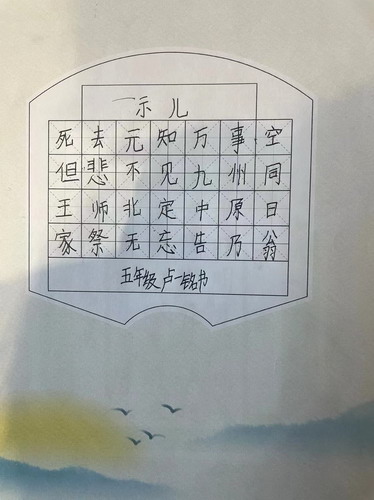 示儿
死去元知万事空
但悲不见九州同
王师北定中原日
家祭无忘告乃翁
五年级卢一铭书